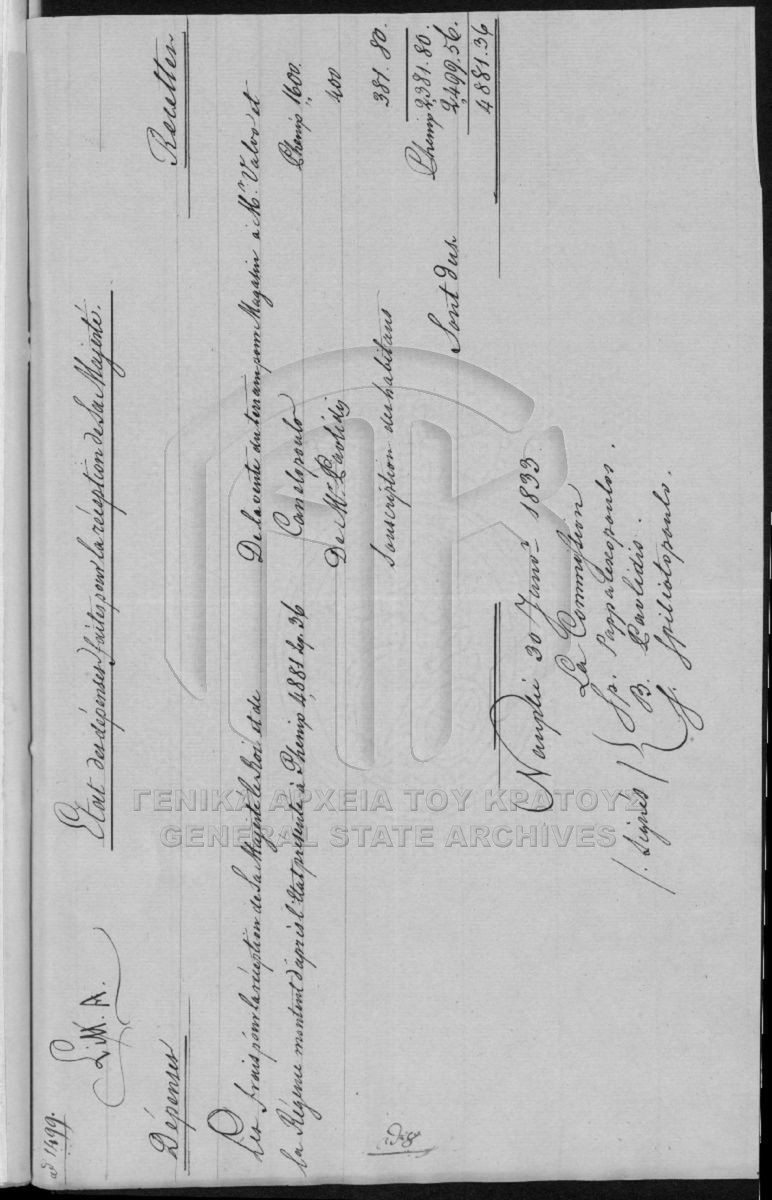 ad 1499.
Litt. A.
Etat des dépenses faites pour la réception de Sa Majesté.
Dépenses
Recettes
Les frais pour la réception de Sa Majesté le Roi et de
la Régence montent d'après l'Etat présenté à Phenix 4,881 lep. 36
De la vente du terrain pour Magasin à Mr. Valvo et
Canelopoulo Phenix 1600.
De Mr. Pavlidis 400
Souscription des habitans 381. 80.
Phenix 2,381. 80.
Sont dus 2,499. 56.
4881. 36
Nauplie 30 Janvr 1833
La Commission
/. signés / Sp. Pappalexopoulos.
B. Pavlidis.
G. Spiliotopoulo.
ΓΕΝΙΚΑ ΑΡΧΕΙΑ ΤΟΥ ΚΡΑΤΟΥΣ
GENERAL STATE ARCHIVES